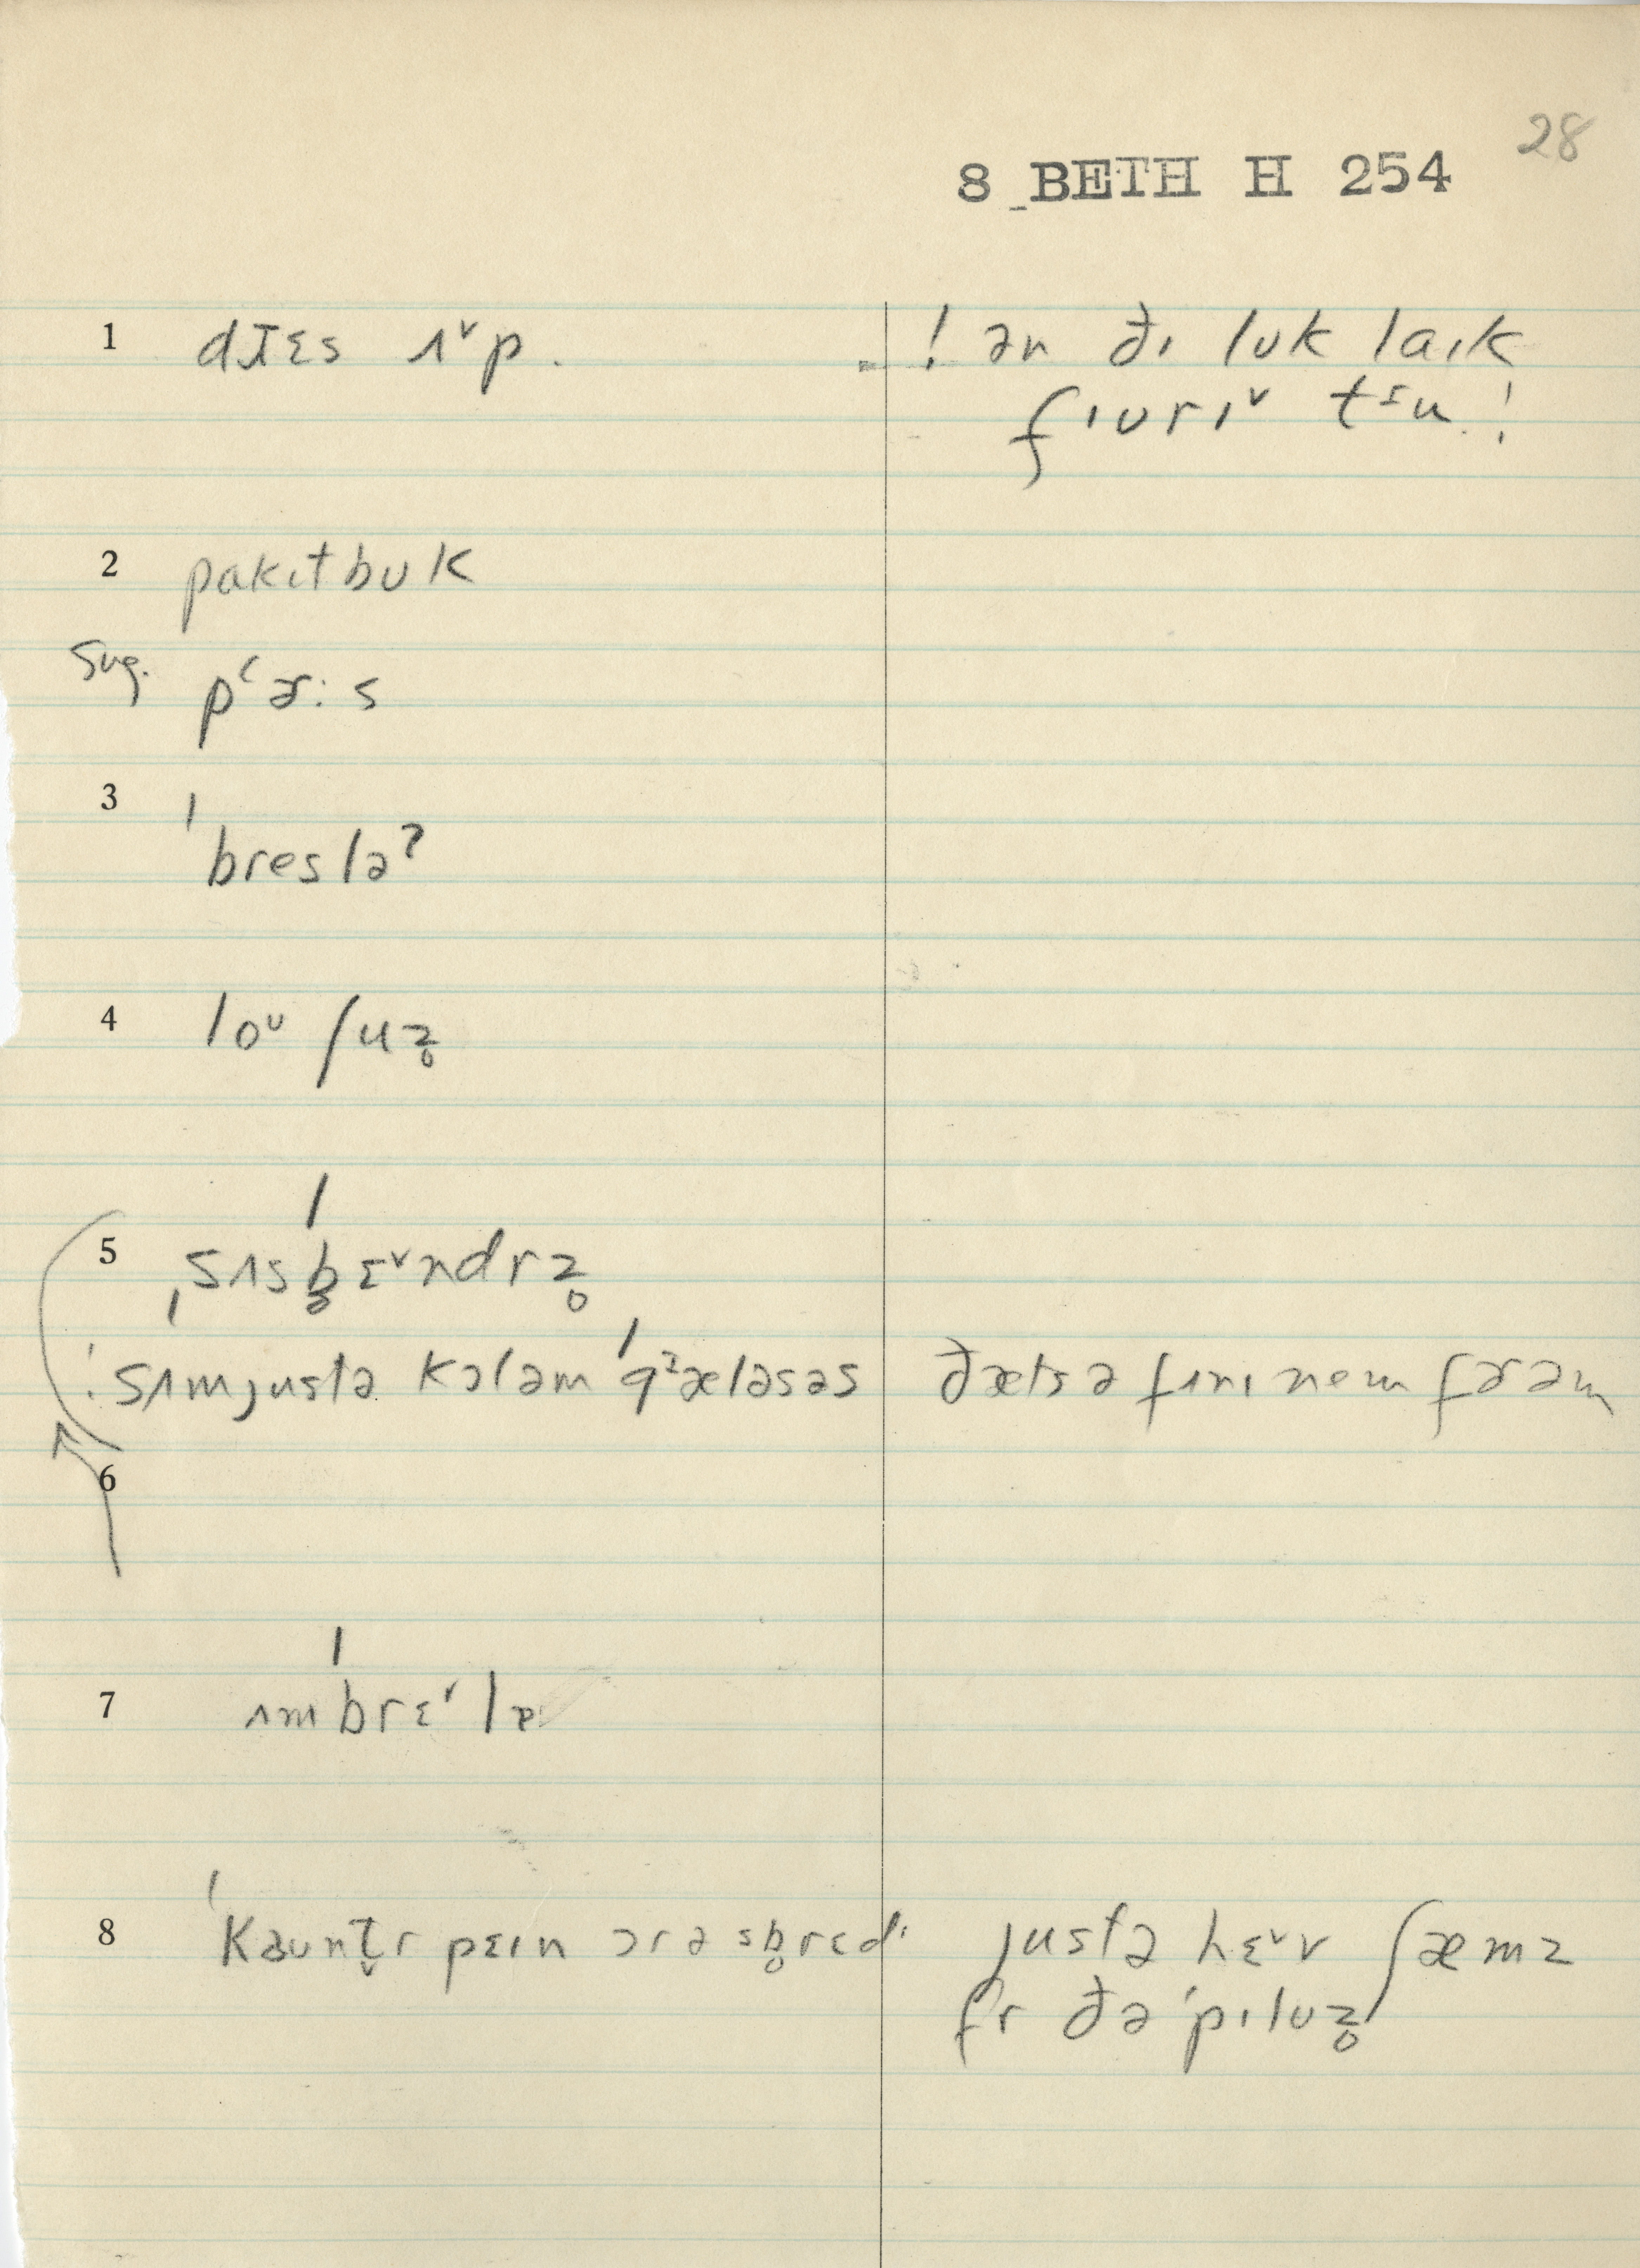 28
8 BETH H 254
1 dɹɛs ʌ˅p.
! ən ðɪ lʊk laɪk
fɪʊrɪ˅ tᶦu!
2 pakɪtbʊk
sug. pʻɚ:s
3 ˈbreslə?
4 loᶷ ʃuz̥
5 ˌsʌsˈb̥ɛ˅ndrz̥
! sʌmjustə kɔləm ˈgᶦæləsəs
ðæts ə fɪnɪ nem fɚəm
6
7 ʌmˈbrɛ˅lə
8 ˈkaʊnt̬r pɛɪn ɔr ə sb̥rɛdˑ
justə hɛ˅v ʃæmz
fr ðə ˈpɪlʊz̥